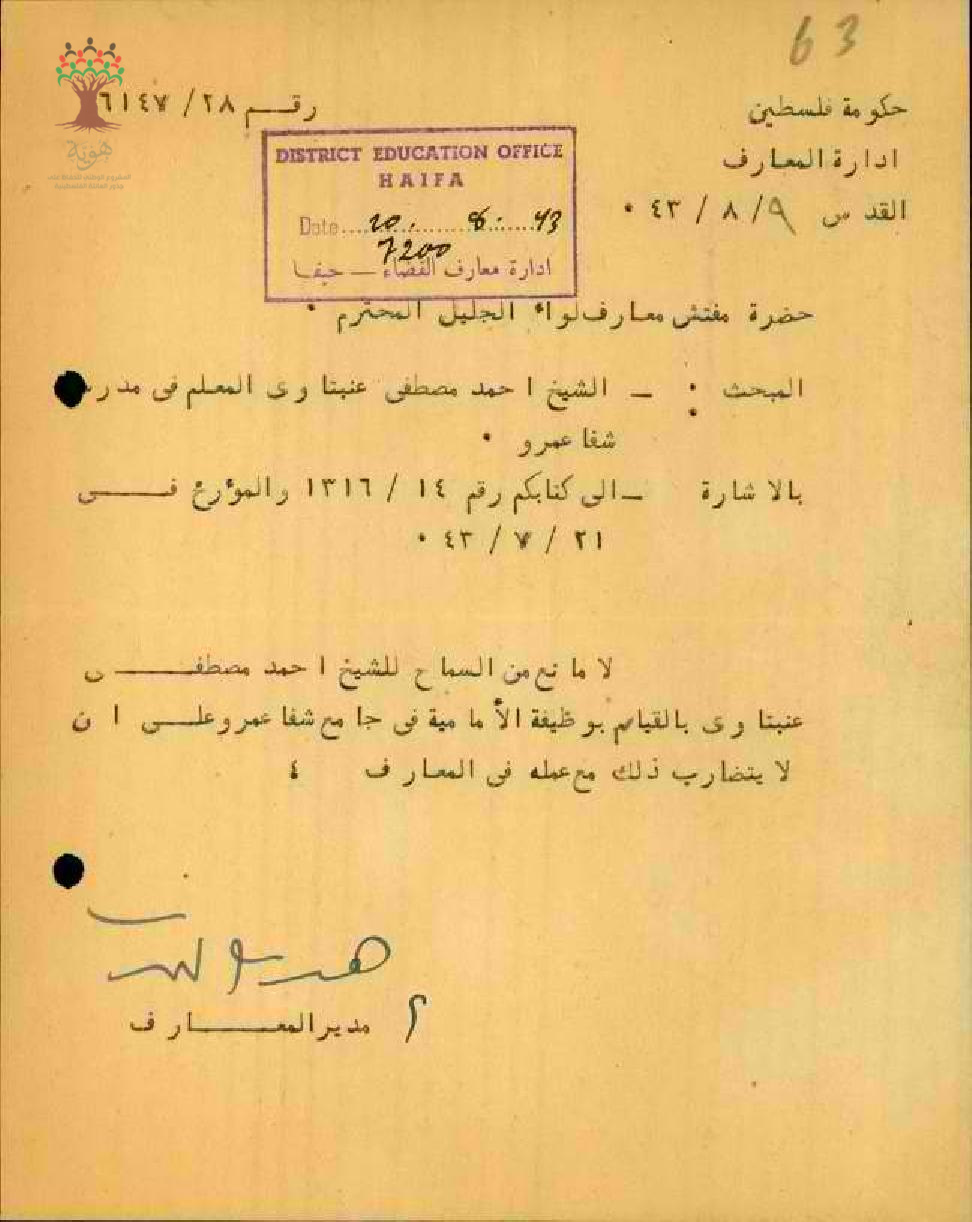 63
حكومة فلسطين
رقـــم ٢٨/ ٦١٤٧
ادارة المعارف
القدس ٩/ ٨ / ٤٣ ٠
DISTRICT EDUCATION OFFICE
HAIFA
Date....20.........8.......43
7200
ادارة معارف القضاء – حيفا
حضرة مفتش معارف لواء الجليل المحترم ٠
المبحث : – الشيخ احمد مصطفى عنبتاوى المعلم فى مدر
شفا عمرو ٠
بالاشارة – الى كتابكم رقم ١٤ / ١٣١٦ والمؤرخ فـــى
٢١ / ٧ / ٤٣ ٠
لا مانع من السماح للشيخ احمد مصطفـــى
عنبتاوى بالقيام بوظيفة الأمامية فى جامع شفا عمرو علـــى ان
لا يتضارب ذلك مع عمله فى المعارف ٤
م مدير المعـــــارف
هوية